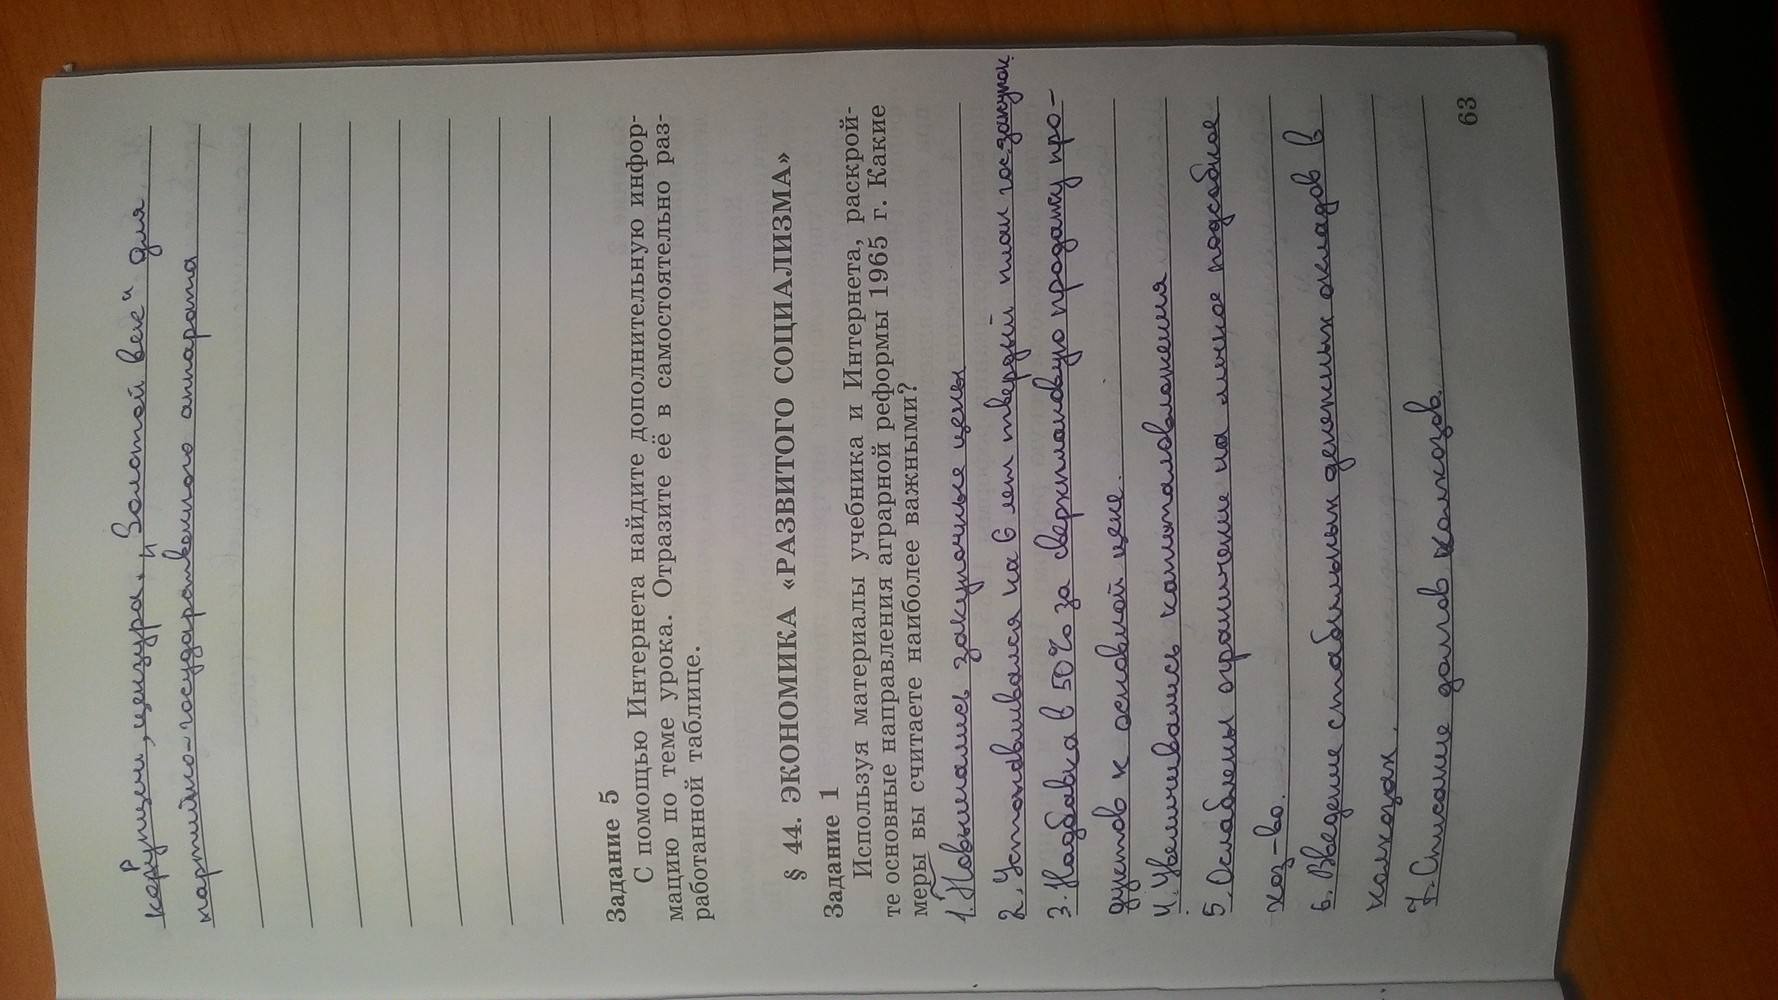 коррупции, цензура. и Золотой век и для
партийно-государственного аппарата
Задание 5
С помощью Интернета найдите дополнительную инфор-
мацию по теме урока. Отразите её в самостоятельно раз-
работанной таблице.
§ 44. ЭКОНОМИКА «РАЗВИТОГО СОЦИАЛИЗМА»
Задание 1
Используя материалы учебника и Интернета, раскрой-
те основные направления аграрной реформы 1965 г. Какие
меры вы считаете наиболее важными?
1. Повышались закупочные цены
2. Устанавливался на 6 лет твердый план госзакупок
3. Надбавка в 50% за сверхплановую продажу про-
дуктов к основной цене.
4. Увеличивались капиталовложения
5. Ослаблены ограничение на личное подсобное
хоз-во.
6. Введение стабильных денежных окладов в
колхозах.
7. Списание долгов колхозов.
63